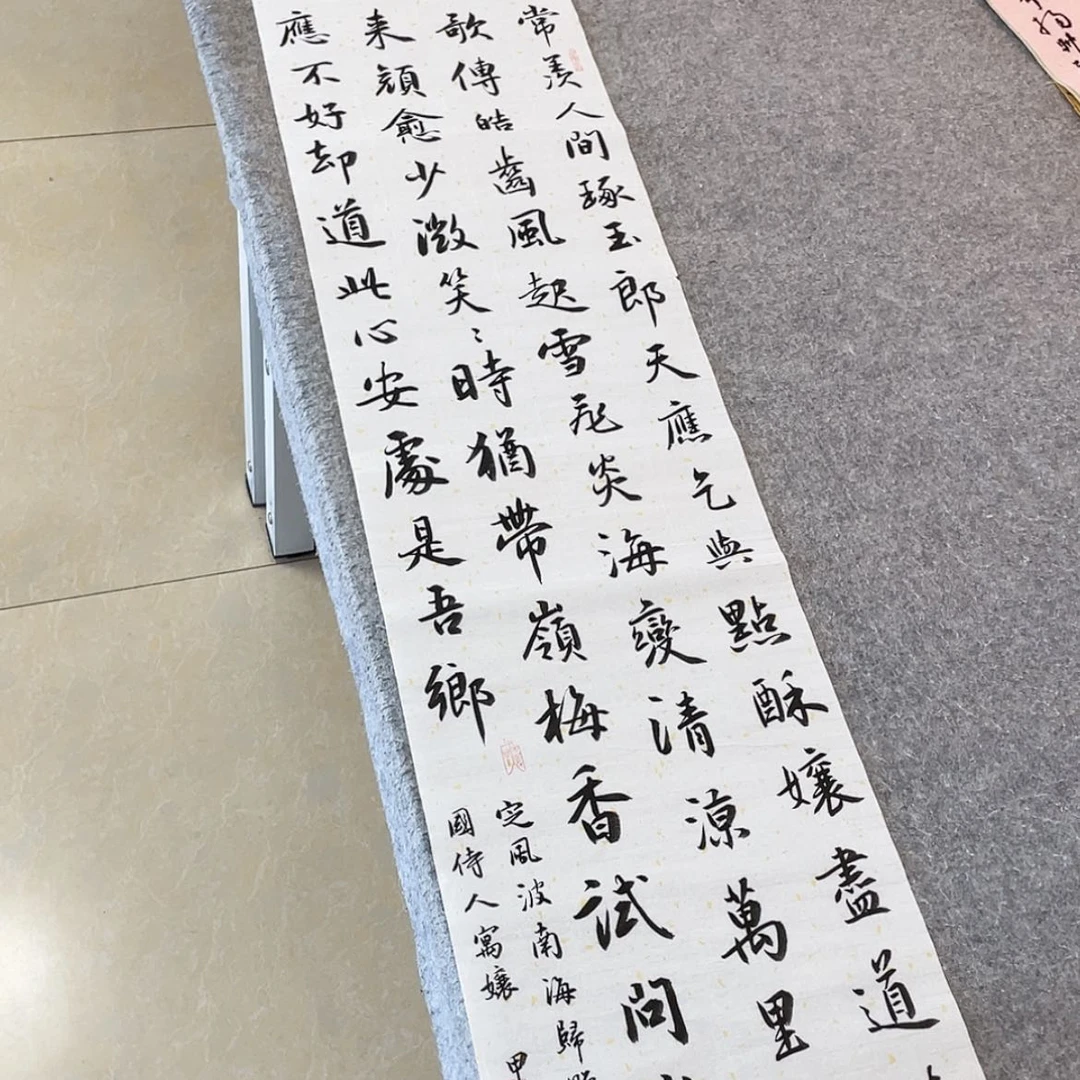 常羨人間琢玉郎天應乞與點酥孃盡道
歌傳皓齒風起雪飛炎海變清涼萬里
来顏愈少微笑〻時猶帶嶺梅香試問
應不好却道此心安處是吾鄉
定風波南海歸
國侍人寓孃 甲